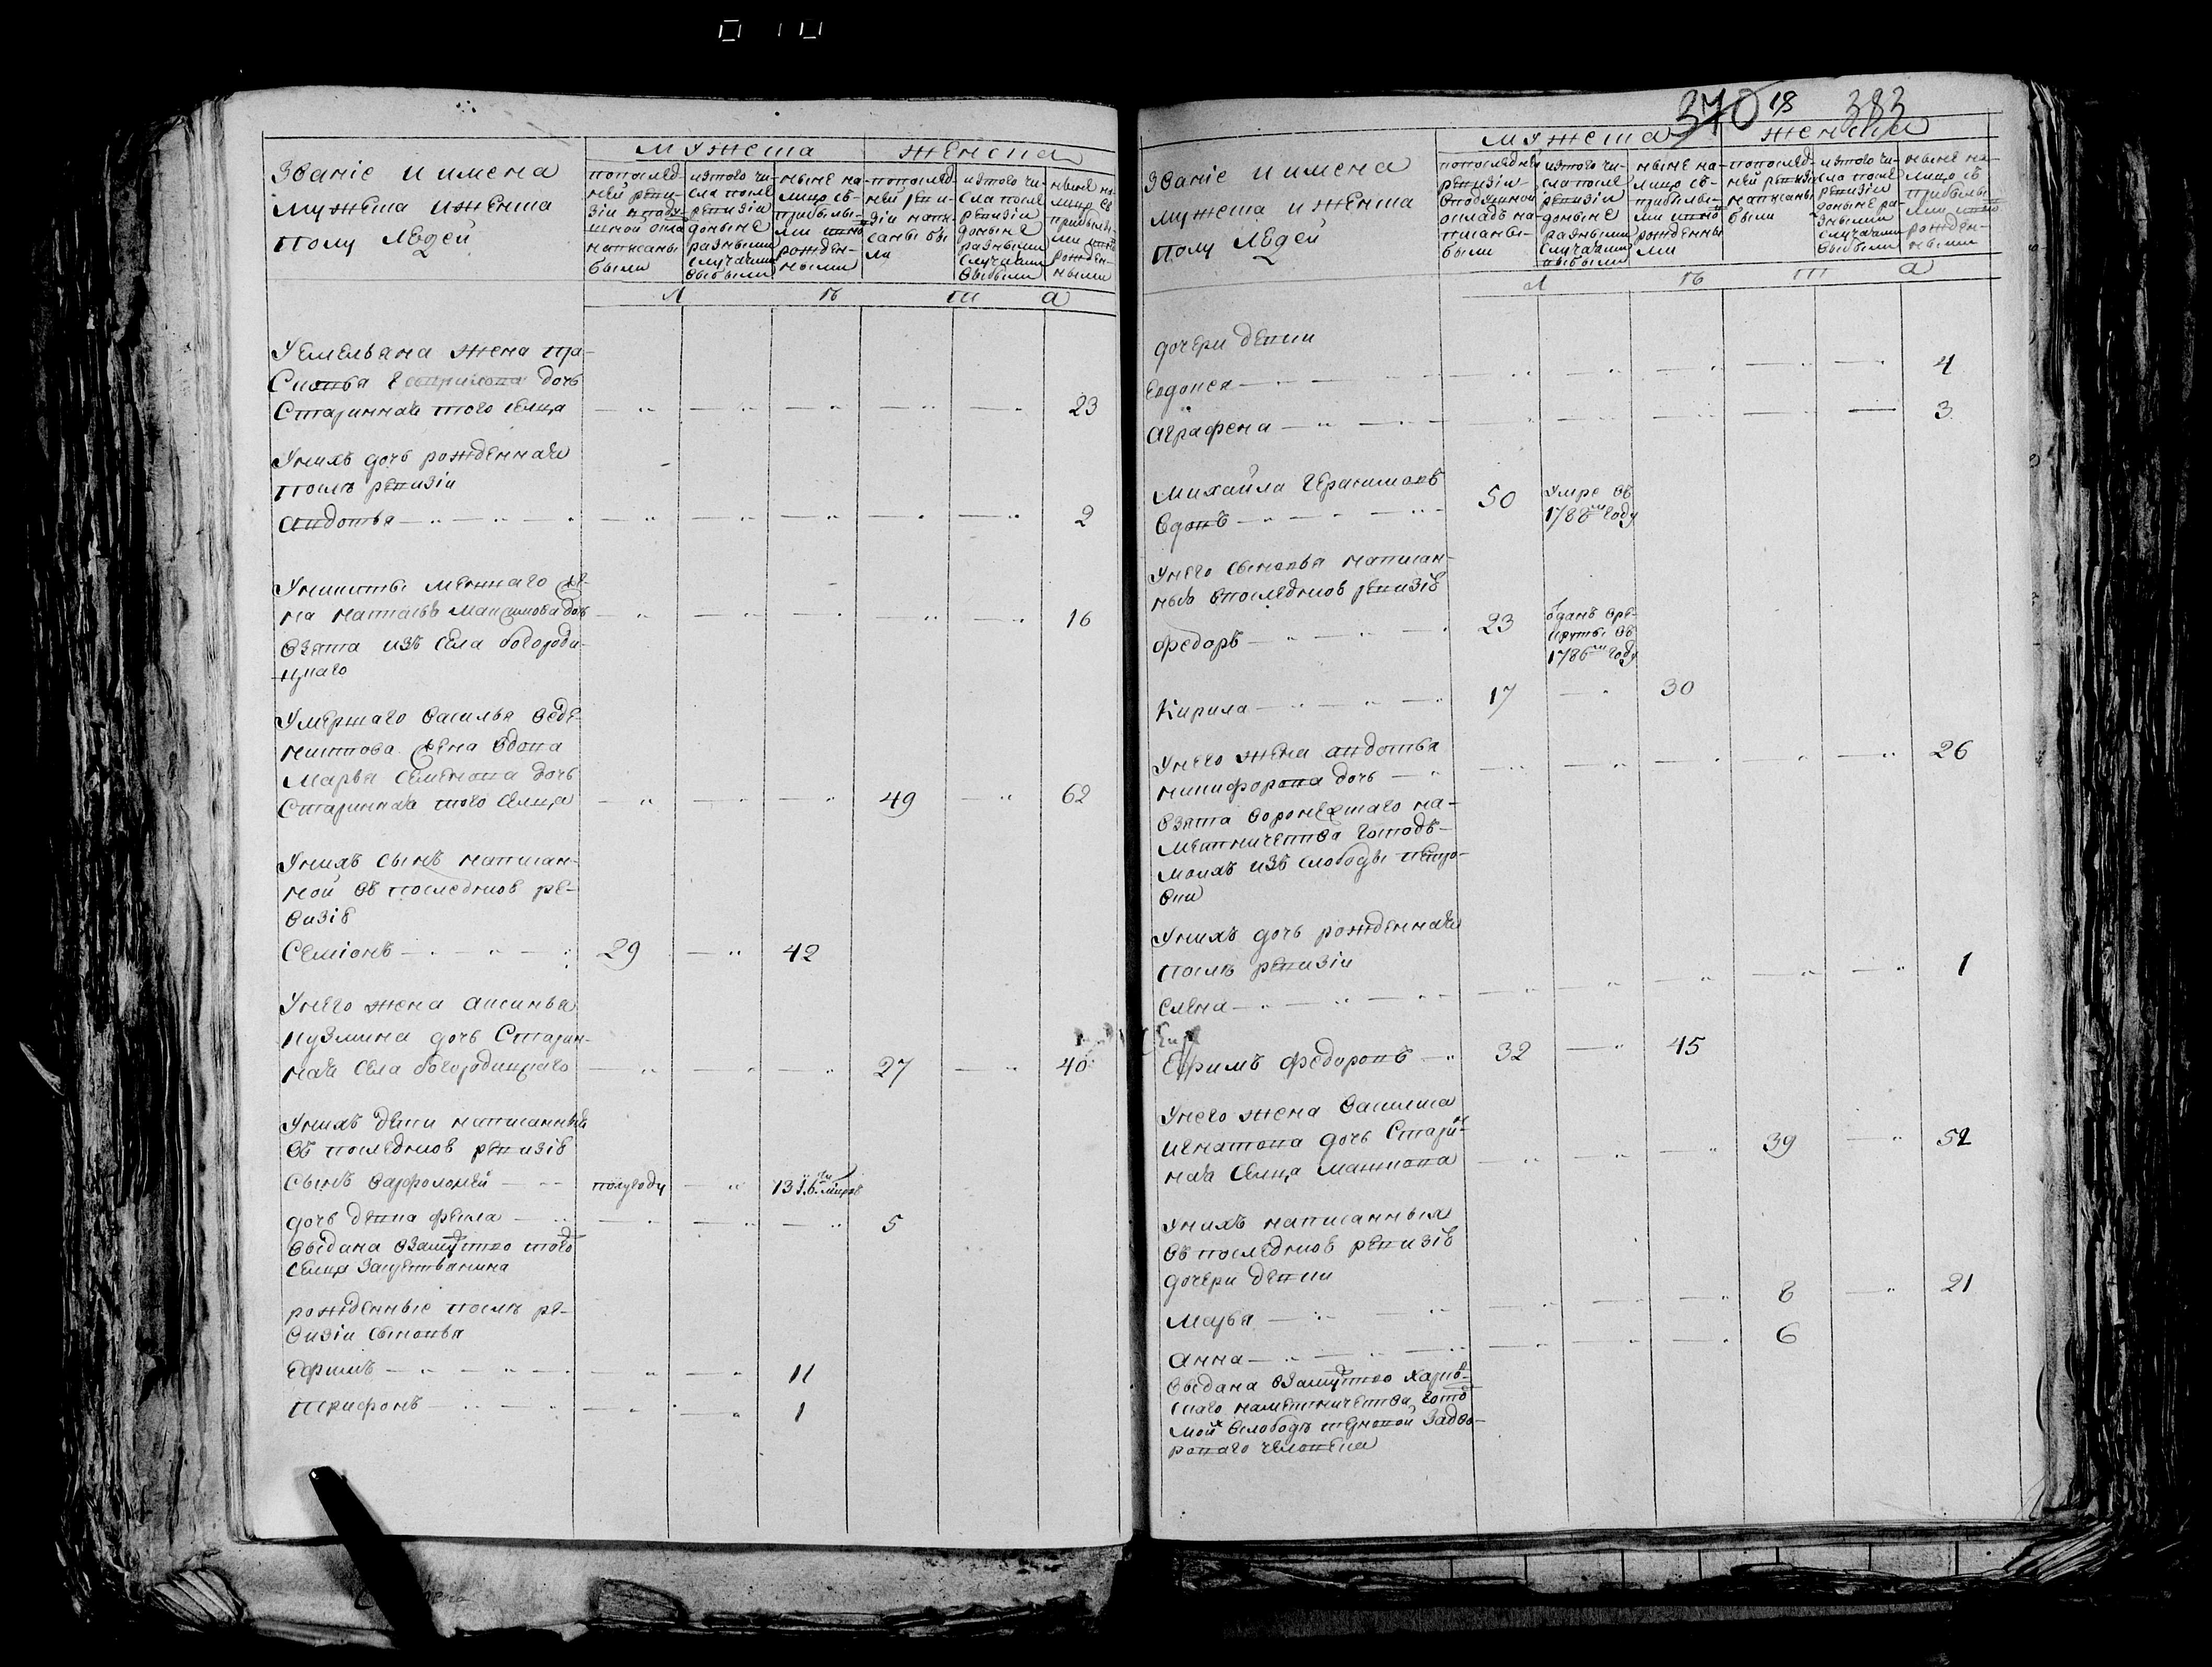 Званіе и имена
мужеска и женска
полу людей
мужеска
женска
попослѣд-
ней реви-
зіи в поду-
шной окла
написаны
были
изтого чи-
сла послѣ
ревизіи
донынѣ
разными
случаями
выбыли
нынѣ на-
лицо съ
прибылы-
ми и вно
рожден-
ными
попослѣд-
ней реви-
зіи напи-
саны бы
ли
изтого чи-
сла послѣ
ревизіи
донынѣ
разными
случаями
выбыли
нынѣ на-
лицо съ
прибылы-
ми и вно
рожден-
ными
л ѣ т а
Уемельяна жена Пра-
сковья дочь
Стариннаа того селца 23
Унихъ дочь рожденнаа
послѣ ревизіи
Авдотья 2
Уникиты меншаго же-
на Наталья Максимова дочь 16
Взята изъ села богороди-
цкаго
Умершаго Василья Веде-
никтова жена вдова
Марья Семенова дочь
Стариннаа того селца 49 62
Унихъ сынъ написан-
ной въ последней ре-
визіи
Семіонъ 29 42
Унего жена Аксинья
Кузмина дочь Старин-
наа села богородицкаго 27 40
Унихъ дети написанныя
въ последней ревизіи
Сынъ Варфоломей полугоду 13
дочь девка Фекла 5
Выдана взамужство того
селца закрестьянина
рожденные послѣ ре-
визіи сыновья
Ефимъ 11
Трифонъ 1
370 18 383
Званіе и имена
мужеска и женска
полу людей
мужеска
женска
попоследней
ревизіи
вподушной
окладъ на-
писаны
были
изтого чи-
сла послѣ
ревизіи
донынѣ
разными
случаями
выбыли
нынѣ на-
лицо съ
прибылы-
ми и вно
рожденны
ми
попослед-
ней ревизіи
написаны
были
изтого чи-
сла послѣ
ревизіи
донынѣ ра-
зными
случаями
выбыли
нынѣ на-
лицо съ
прибылы-
ми и вно
рожден-
ными
л ѣ т а
дочери девки
Евдокея 4
Аграфена 3
Михайла Герасимовъ
Вдовъ 50 Умре въ
1788м году
Унего сыновья написан-
ныя впоследней ревизіи
Федоръ 23 Отданъ вре-
круты въ
1786м году
Кирила 17 30
Унего жена Авдотья
Никифорова дочь 26
Взята воронежскаго на-
местничества господъ-
моихъ изъ слободы петро-
вки
Унихъ дочь рожденнаа
послѣ ревизіи
Елена 1
Ефимъ Федоровъ 32 45
Унего жена Василиса
Игнатова дочь Старин-
наа селца 39 52
Унихъ написанныя
въ последней ревизіи
дочери девки
Марья 8 21
Анна 6
Выдана взамужство харко-
скаго наместничества госпо
мой вслободу задво-
роваго человека